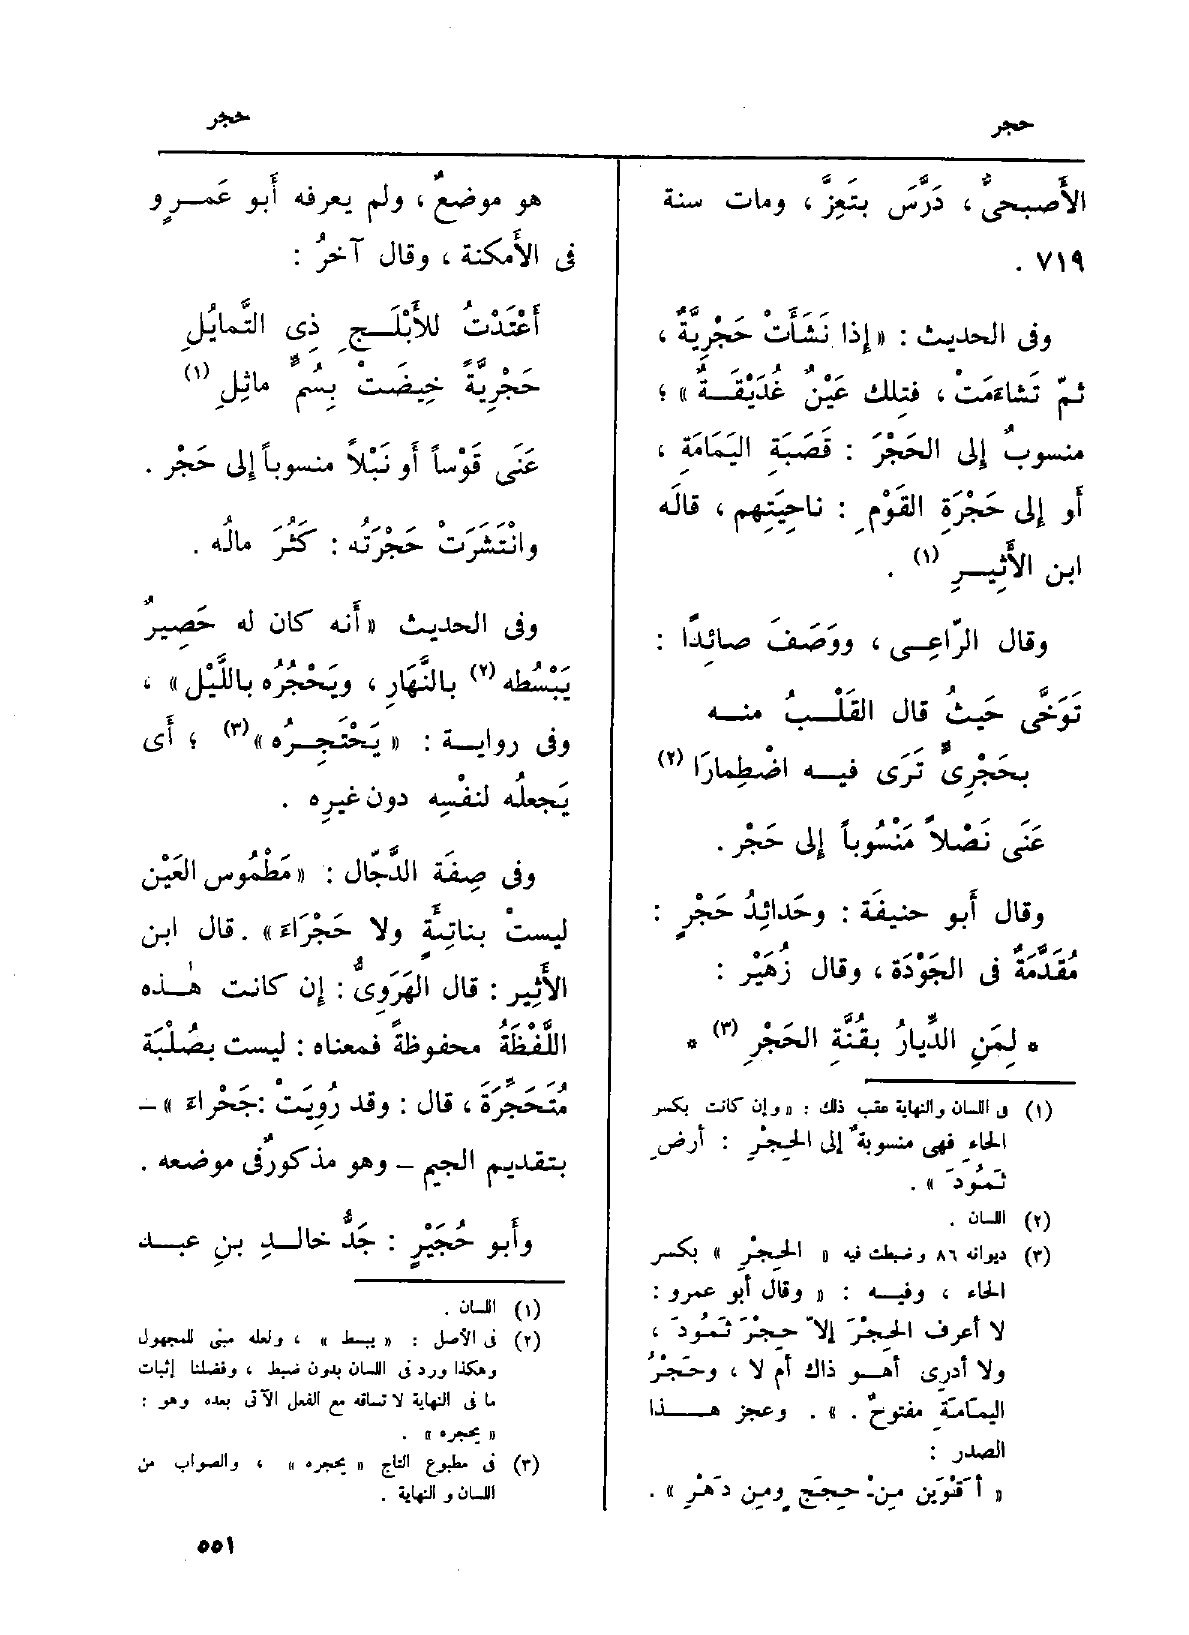 حجر
حجر
الأَصبحىُّ ، دَرَّسَ بتَعِزَّ ، ومات سنة
٧١٩ .
وفى الحديث : « إِذا نَشَأَتْ حَجْرِيَّةٌ ،
ثمّ تَشاءَمَتْ ، فتِلك عَيْنٌ غُدَيْقَـةٌ » ؛
منسوبٌ إلى الحَجْرَ : قَصَبَةِ اليَمَامَةِ ،
أَو إلى حَجْرَةِ القَوْمِ : ناحِيَتِهم ، قالَه
ابن الأَثِيـرِ (١) .
وقال الرّاعِـى ، ووَصَفَ صائِدًا :
تَوَخَّى حَيثُ قال القَلْـبُ منـه
بحَجْرِىٍّ تَرَى فيـه اضْطِمارَا (٢)
عَنَى نَصْلاً مَنْسُوباً إلى حَجْر .
وقال أَبو حنيفَة : وحَدائدُ حَجْرٍ :
مُقَدَّمَةٌ فى الجَوْدَة ، وقال زُهَيْر :
* لِمَنِ الدِّيارُ بقُنَّةِ الحَجْرِ (٣) *
(١) فى اللسان والنهاية عقب ذلك : « وإن كانت بكسر
الحاءِ فهى منسوبةٌ إلى الحِجْرِ : أرضِ
ثَمُودَ » .
(٢) اللسان .
(٣) ديوانه ٨٦ وضبطت فيه « الحِجْرِ » بكسر
الحاء ، وفيـه : « وقال أبو عمرو :
لا أعرف الحِجْرَ إلاّ حِجْرَ ثَمُودَ ،
ولا أدرى أهـو ذاك أم لا ، وحَجْرُ
اليمامَةِ مفتوحٌ . » . وعجز هـذا
الصدر :
« أقْوَيْن مِنْ حِجَجٍ ومِن دَهْرِ » .
هو موضعٌ ، ولم يعرفه أَبو عَمـرٍو
فى الأَمكنة ، وقال آخرُ :
أَعْتَدْتُ للأَبْلَـجِ ذِى التَّمايُلِ
حَجْرِيَّةً خِيضَتْ بِسُمٍّ ماثِلِ (١)
عَنَى قَوْساً أَو نَبْلاً منسوباً إلى حَجْر .
وانْتَشَرَتْ حَجْرَتُه : كَثُرَ مالُه .
وفى الحديث « أَنه كان له حَصِيرٌ
يَبْسُطه (٢) بالنَّهارِ ، ويَحْجُرُه باللَّيْل » ،
وفى روايـة : « يَحْتَجِـرُه » (٣) ؛ أَى
يَجعلُه لنفْسِه دون غيرِه .
وفى صِفَة الدَّجّال : « مَطْمُوس العَيْن
ليستْ بناتِئَةٍ ولا حَجْرَاءَ » . قال ابن
الأَثِير : قال الهَرَوِىُّ : إِن كانت هٰـذه
اللَّفْظَةُ محفوظةً فمعناه : ليست بصُلْبَة
مُتَحَجِّرَة ، قال : وقد رُوِيَتْ : جَحْراءَ » –
بتقديم الجيم – وهو مذكورٌ فى موضعه .
وأَبو حُجَيْرٍ : جَدُّ خالـدِ بنِ عبـد
(١) اللسان .
(٢) فى الأصل : « يبسط » ، ولعله مبنى للمجهول
وهكذا ورد فى اللسان بدون ضبط ، وفضلنا إثبات
ما فى النهاية لاتساقه مع الفعل الآتى بعده وهو :
« يحجره » .
(٣) فى مطبوع التاج « يحجره » ، والصواب من
اللسان و النهاية .
٥٥١